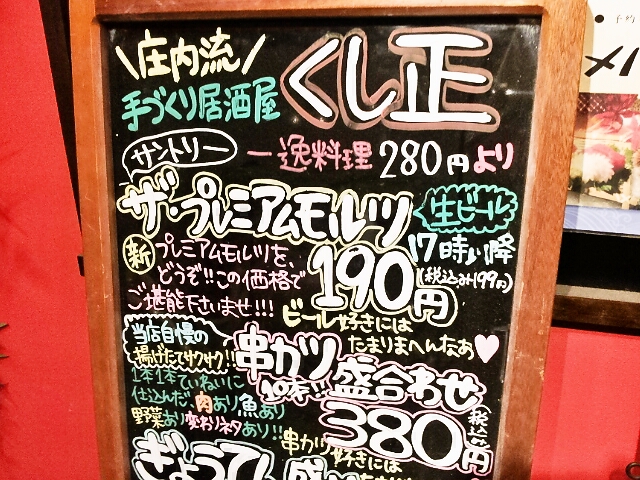 庄内流
手づくり居酒屋
くし正
サントリー
一逸料理 280円より
ザ・プレミアムモルツ
生ビール
新
プレミアムモルツを、
どうぞ!!この価格で
ご堪能下さいませ!!!
190円
17時以降
(税込み199円)
ビール好きには
たまりまへんなあ♥
当店自慢の
揚げたてサクサク!!
串カツ
10本!!
盛合わせ
1本1本ていねいに
仕込んだ、肉あり魚あり
野菜あり変わりネタあり!!
380円
串カツ好きには
ぎょうてん